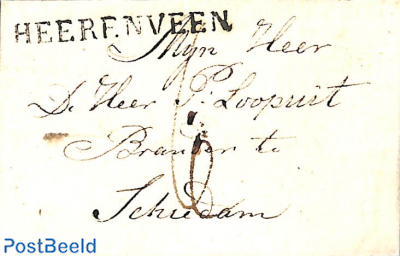 HEERENVEEN
Mijn Heer
De Heer P. Loopuit
Brander te
Schiedam
6
PostBeeld